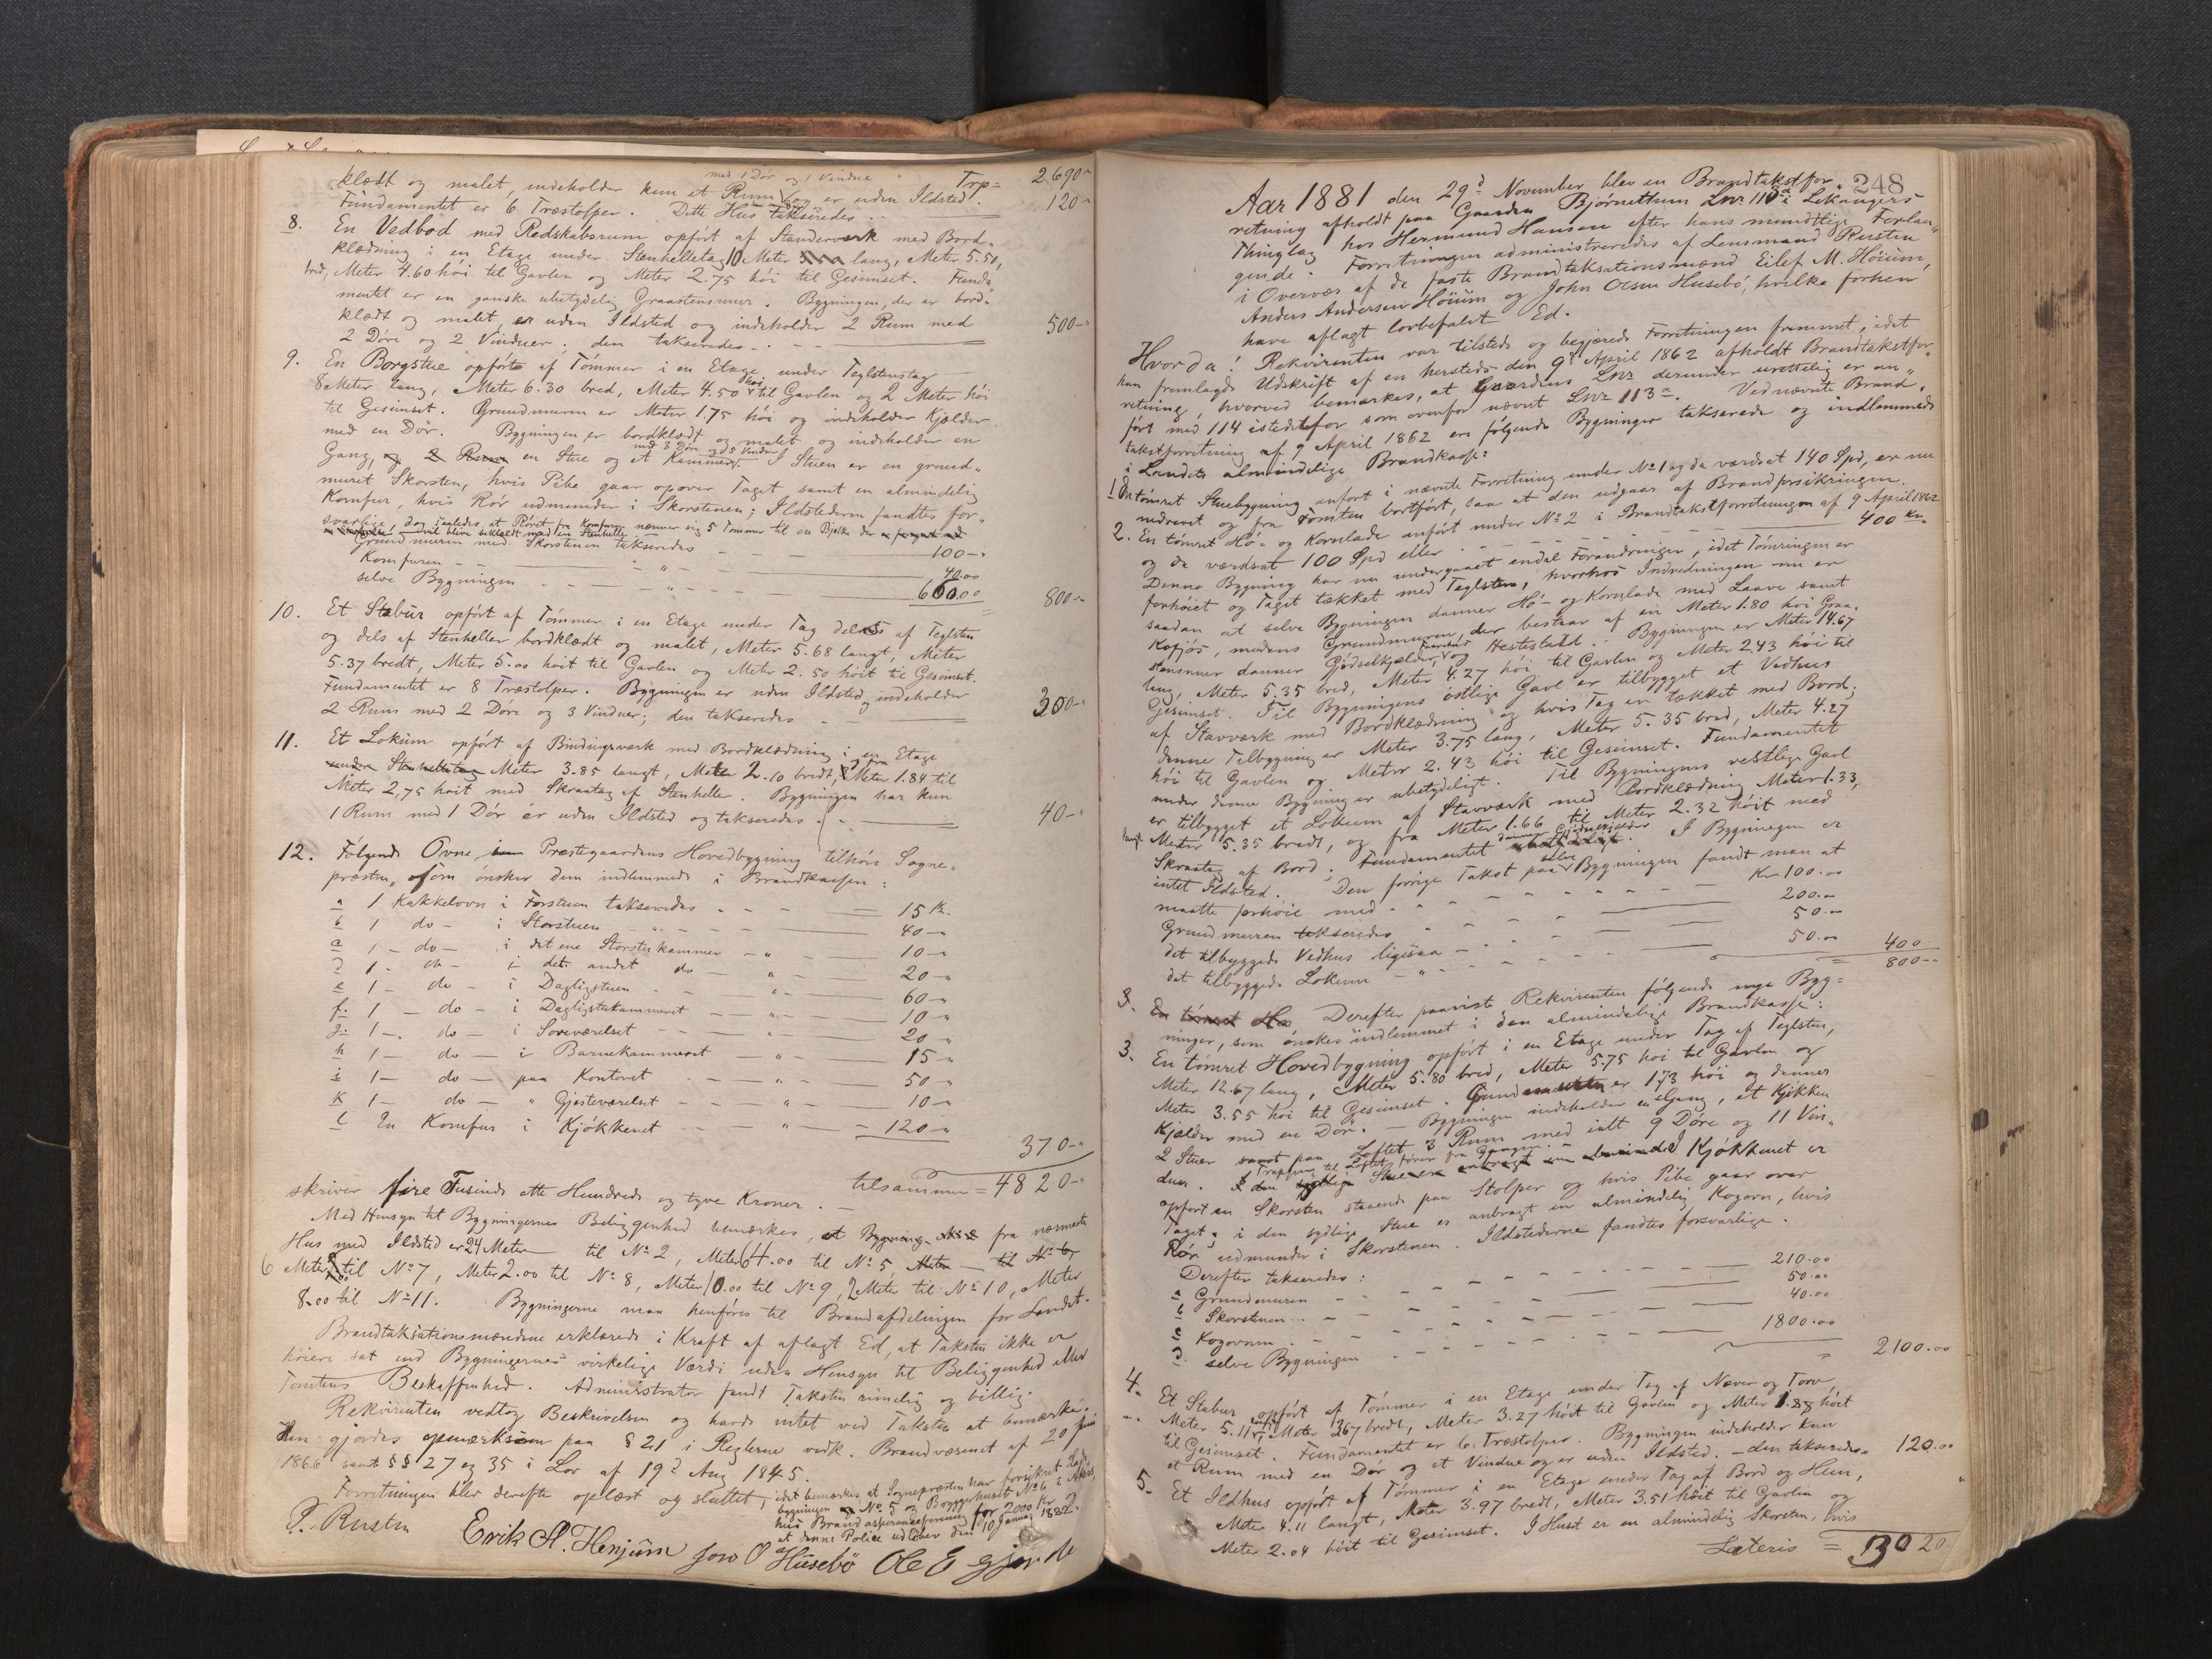 med 1 Dör og 1 Vindue
klædt og malet, indeholder kun et Rum og er uden Ildsted. Trp = 2690 "
Fundamentet er 6 Træstolper. Dette Hus takseredes .. 120 "
8. En Vedbod med Redskabsrum opfört af Standerværk med Bord-
klædning i en Etage under Stenhelletag 10 Meter lang, Meter 5.50,
bred, Meter 4.60 höi til Gavlen og Meter 2.75 höi til Gesimset. Funda-
mentet er en ganske ubetydelig Graastensmur. Bygningen, der er bord-
klædt og malet, er uden Ildsted og indeholder 2 Rum med
2 Döre og 2 Vinduer; den takseredes - . - - 500 - "
9. En Borgstue opförte af Tömmer i en Etage under Teglstenstag
8 Meter lang, Meter 6.30 bred, Meter 4.50 höi til Gavlen og 2 Meter höi
til Gesimset. Grundmuren er Meter 1.75 höi og indeholder Kjælder
med en Dör. Bygningen er bordklædt og malet og indeholder en
med 3 Döre og 5 Vinduer
Gang, og 2 Rum en Stue og et Kammers. I Stuen er en grund-
muret Skorsten, hvis Pibe gaar op over Taget samt en almindelig
Komfur, hvis Rör udmunder i Skorstenen; Ildstederne fandtes for-
svarlige, dog saaledes at Röret fra Komfuret nærmer sig 5 Tommer til en Bjelke der
vil blive beklædt med en Stenhelle
Grundmuren med Skorstenen takseredes - - - 100 - "
Komfuren - - " - 40.00
selve Bygningen - - " - 660.00 800 - "
10. Et Stabur opfört af Tömmer i en Etage under Tag dels af Teglsten
og dels af Stenheller bordklædt og malet, Meter 5.68 langt, Meter
5.37 bredt, Meter 5.00 höit til Gavlen og Meter 2.50 höit til Gesimset.
Fundamentet er 8 Træstolper. Bygningen er uden Ildsted og indeholder
2 Rum med 2 Döre og 3 Vinduer; den takseredes - 300 - "
11. Et Lokum opfört af Bindingsværk med Bordklædning i en Etage
under Stenhelletag Meter 3.85 langt, Meter 2.10 bredt, fra Meter 1.84 til
Meter 2.75 höit med Skraatag af Stenheller. Bygningen har kun
1 Rum med 1 Dör er uden Ildsted og takseredes 40 - "
12. Fölgende Ovne i Præstegaardens Hovedbygning tilhöre Sogne-
præsten, som önsker dem indlemmede i Brandkassen:
a 1 Kakkelovn i Forstuen takseredes - - - 15 Kr.
b 1 do - i Storstuen - " - 40 - "
c 1 - do - i det ene Storstukammer - " - 10 - "
d 1 - do - i det andet do - " - 20 - "
e 1 - do - i Dagligstuen - " - 60 - "
f. 1 - do - i Dagligstukammeret - " - 10 - "
g. 1 - do - i Soveværelset - " - 20 - "
h 1 - do - i Barnekammeret - " - 15 - "
i 1 - do - paa Kontoret - " - 50 - "
k 1 - do - " Gjesteværelset - " - 10 - "
l En Komfur i Kjökkenet - " - 120 - "
370 - "
tilsammen = 4820 - "
skriver fire Tusinde otte Hundrede og tyve Kroner. -
Med Hensyn til Bygningernes Beliggenhed bemærkes, at Bygning No 1 fra nærmeste
Hus med Ildsted er 24 Meter til No 2, Meter 64.00 til No 5 Meter - til No 6,
6 Meter til No 7, Meter 2.00 til No 8, Meter 10.00 til No 9, 2 Meter til No 10, Meter
8.00 til No 11. Bygningerne maa henföres til Brandafdelingen for Landet.
Brandtaksationsmændene erklærede i Kraft af aflagt Ed, at Taksten ikke er
höiere sat end Bygningernes virkelige Værdi uden Hensyn til Beliggenhed eller
Tomtens Beskaffenhed. Administrator fandt Taksten rimelig og billig.
Rekvirenten vedtog Beskrivelsen og havde intet ved Taksten at bemærke.
Han gjordes opmærksom paa § 21 i Reglerne vedk. Brandvæsenet af 20 Juni
1866 samt §§ 27 og 35 i Lov af 19d Aug 1845.
Forretningen blev derefter oplæst og sluttet; idet bemærkes at Sognepræsten har forsikret
bygningen No 5 og Bryggerhuset No 6 i Akers
hus Brandassuranceforening for 2000 Kr og
at denne Police udlöber den 10 Januar 1882.
P. Rusten Erik A. Henjum Jon O Husebö Ole E Gjerde
248
Aar 1881 den 29d November blev en Brandtakstfor-
retning afholdt paa Gaarden Björnethun Lnr 113a i Lekangers
Thinglag hos Hermund Hansen efter hans mundtlige Forlan-
gende. Forretningen administreredes af Lensmand Rusten
i Overvær af de faste Brandtaksationsmænd Eilef M. Höium,
Anders Andersen Höium og John Olsen Husebö, hvilke forhen
have aflagt lovbefalet Ed.
Hvorda: Rekvirenten var tilstede og begjærede Forretningen fremmet, idet
han fremlagde Udskrift af en hersteds den 9d April 1862 afholdt Brandtakstfor-
retning, hvorved bemærkes, at Gaardens Lnr derunder urettelig er an-
fört med 114 istedetfor som ovenfor nævnt Lnr 113a. Ved nævnte Brand-
takstforretning af 9 April 1862 ere fölgende Bygninger takserede og indlemmede
i Landets almindelige Brandkasse:
1 En tömret Stuebygning anfört i nævnte Forretning under No 1 og da værdsat 140 Spd, er nu
nedrevet og fra Tomten bortfört, saa at den udgaar af Brandforsikringen.
2. En tömret Hö- og Kornlade anfört under No 2 i Brandtakstforretningen af 9 April 1862
og da værdsat 100 Spd eller - - - - 400 Kr.
Denne Bygning har nu undergaaet endel Forandringer, idet Tömringen er
forhöiet og Taget tækket med Teglsten, hvorhos Indredningen nu er
saadan at selve Bygningen danner Hö- og Kornlade med Laave samt
Kofjös, medens Grundmuren, der bestaar af en Meter 1.80 höi Graa-
stensmur danner Gjödselkjelder og Hestestald. Bygningen er Meter 14.67
lang, Meter 5.35 bred, Meter 4.27 höi til Gavlen og Meter 2.43 höi til
Gesimset. Til Bygningens östlige Gavl er tilbygget et Vedhus
af Stavværk med Bordklædning og hvis Tag er tækket med Bord;
denne Tilbygning er Meter 3.75 lang, Meter 5.35 bred, Meter 4.27
höi til Gavlen og Meter 2.43 höi til Gesimset. Fundamentet
under denne Bygning er ubetydeligt. Til Bygningens vestlige Gavl
er tilbygget et Lokum af Stavværk med Bordklædning Meter 1.33,
langt Meter 5.35 bredt, og fra Meter 1.66 til Meter 2.32 höit med
Skraatag af Bord; Fundamentet danner Gjödselkjelder. I Bygningen er
intet Ildsted. Den forrige Takst paa selve Bygningen fandt man at
maatte forhöie med - - - - Kr 100.00
Grundmuren takseredes - - - 200.00
det tilbyggede Vedhus ligesaa - - - 50.00
det tilbyggede Lokum - " - - 50.00 400
= 800 - -
3. En tömret Ho Derefter paaviste Rekvirenten fölgende nye Byg-
ninger, som önskes indlemmet i den almindelige Brandkasse:
3. En tömret Hovedbygning opfört i en Etage under Tag af Teglsten,
Meter 12.67 lang, Meter 5.80 bred, Meter 5.75 höi til Gavlen og
Meter 3.55 höi til Gesimset. Grundmuren er 1.73 höi og danner
Kjelder med en Dör. - Bygningen indeholder en Gang, et Kjökken
2 Stuer samt paa Loftet 3 Rum med ialt 9 Döre og 11 Vin-
duer. Trappen til Loftet förer fra Gangen. I Kjökkenet er
opfört en Skorsten staaende paa Stolper og hvis Pibe gaar over
Taget; i den sydlige Stue er anbragt en almindelig Kogovn, hvis
Rör udmunder i Skorstenen. Ildstederne fandtes forsvarlige.
Derefter takseredes:
a Grundmuren - - - - 210.00
b Skorstenen - - - - 50.00
c Kogovnen - - - - 40.00
d. selve Bygningen - - - 1800.00
= 2100.00
4. Et Stabur opfört af Tömmer i en Etage under Tag af Næver og Torv
Meter 5.11 langt, Meter 3.67 bredt, Meter 3.27 höit til Gavlen og Meter 1.88 höit
til Gesimset. Fundamentet er 6 Træstolper. Bygningen indeholder kun
et Rum med en Dör og et Vindue og er uden Ildsted. - den takseredes 120.00
5. Et Ildhus opfört af Tömmer i en Etage under Tag af Bord og Hun,
Meter 4.11 langt, Meter 3.97 bredt, Meter 3.51 höit til Gavlen og
Meter 2.04 höit til Gesimset. I Huset er en almindelig Skorsten, hvis
Lateris = 3020